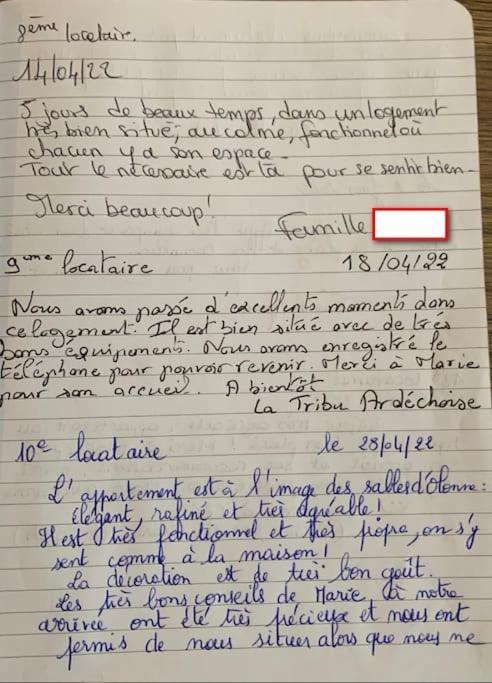 8ème locataire.
14/04/22
5 jours de beaux temps, dans un logement
très bien situé, au calme, fonctionnel où
chacun y a son espace.
Tout le nécessaire est là pour se sentir bien.
Merci beaucoup!
Famille
9eme locataire 18/04/22
Nous avons passé d'excellents moments dans
ce logement. Il est bien situé avec de très
bons équipements. Nous avons enregistré le
téléphone pour pouvoir revenir. Merci à Marie
pour son accueil. A bientôt
La Tribu Ardéchoise
10e locataire le 28/04/22
L'appartement est à l'image des sables d'Olonne:
élégant, rafiné et très agréable!
Il est très fonctionnel et très propre, on s'y
sent comme à la maison!
La décoration est de très bon goût.
Les très bons conseils de Marie, à notre
arrivée ont été très précieux et nous ont
permis de nous situer alors que nous ne